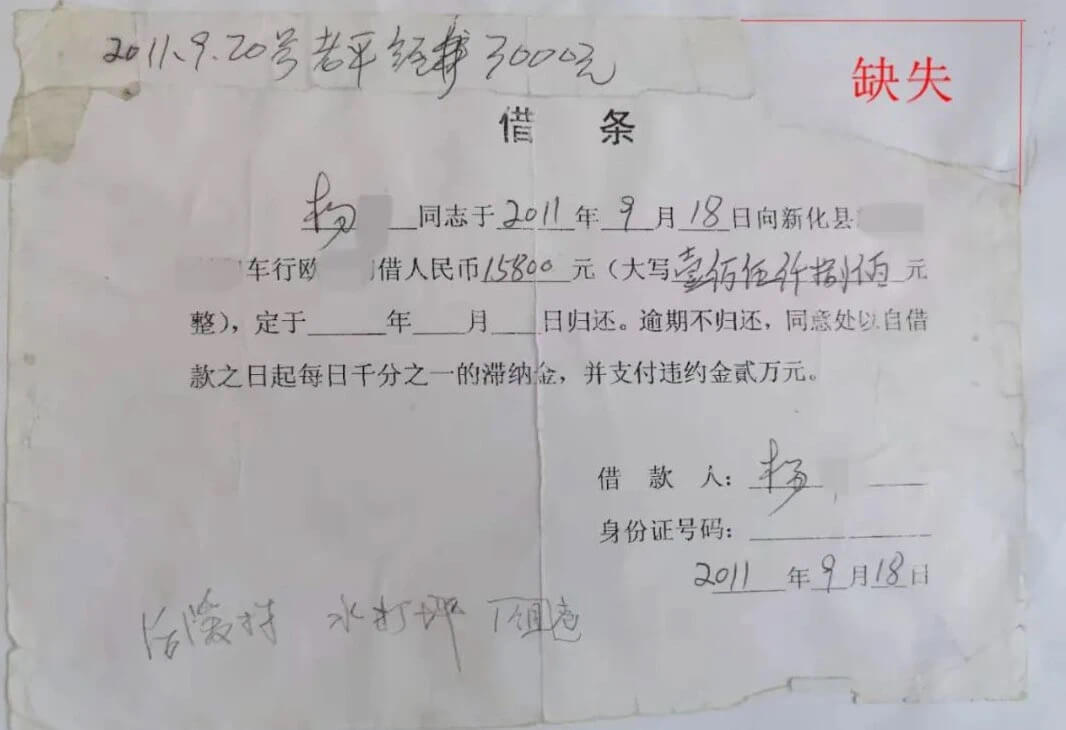 2011.9.20号老平经手3000元
缺失
借 条
杨 同志于2011年9月18日向新化县
车行欧 借人民币15800元（大写壹佰伍仟捌佰元
整），定于 年 月 日归还。逾期不归还，同意处以自借
款之日起每日千分之一的滞纳金，并支付违约金贰万元。
借 款 人：杨
身份证号码：
2011年9月18日
水打坪